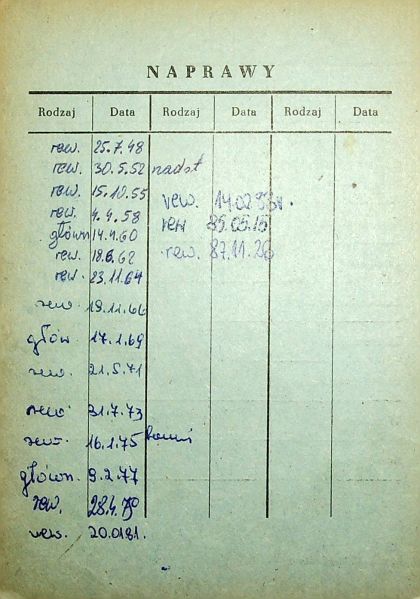 NAPRAWY
Rodzaj Data Rodzaj Data Rodzaj Data
rew. 25.7.48
rew. 30.5.52 nadst
rew. 15.10.55
rew. 4.4.58
główn 14.4.60
rew. 18.6.62
rew. 23.11.64
rew. 19.11.66
głów. 17.1.69
rew. 21.5.71
rew. 31.7.73
rew. 16.1.75
główn. 9.2.77
rew. 28.4.
rew. 20.01.81.
rew. 14.02
rew 85.05.15
rew. 87.11.26